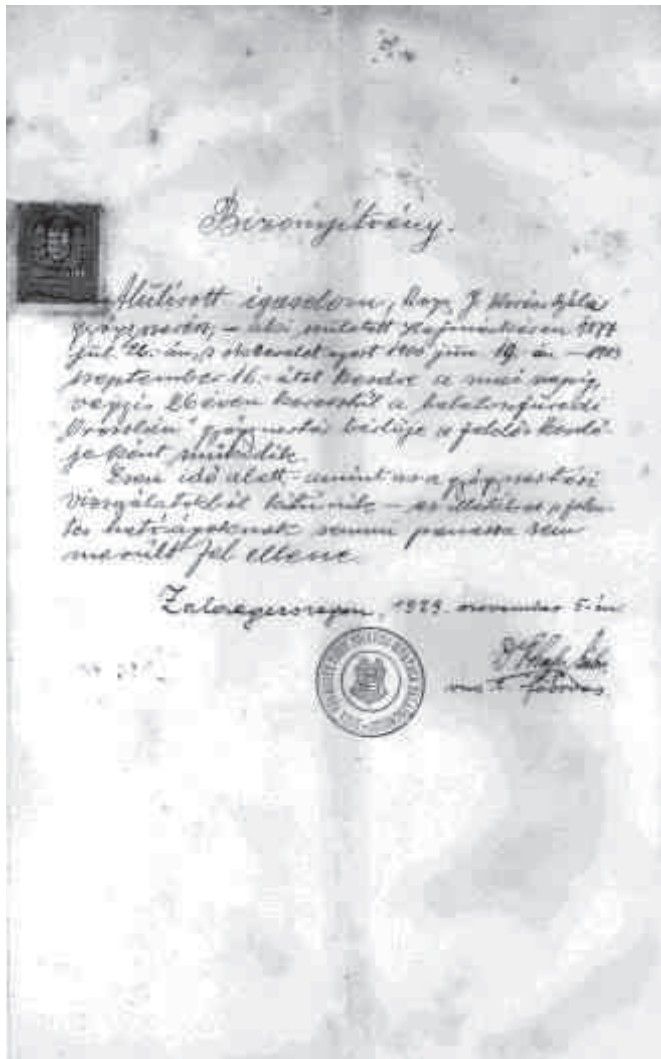 Bizonyitvány.
Alulirott igazolom, hogy J. Béla
gyógyszerész, – aki született 1877
jul. 26.-án, s oklevelet nyert 1900 jun. 19.-én – 1903
szeptember 16.-ától kezdve a mai napig
vagyis 26 éven keresztül a balatonfüredi
„Oroszlán” gyógyszertár bérlője s felelős kezelő-
jeként működik.
Ezen idő alatt – amint az a gyógyszertári
vizsgálatokból kitünik – az illetékes
hatóságoknak semmi panasza sem
merült fel ellene.
Zalaegerszegen, 1929. november 5.-én
Dr.